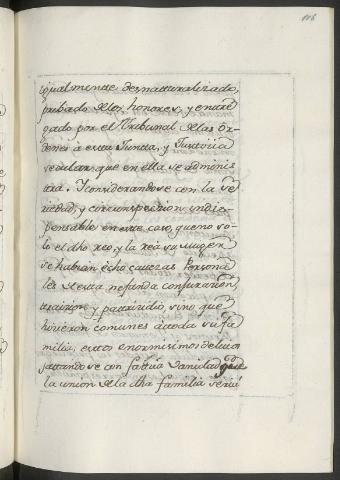 116
igualmente desnatturalizado,
pribado de los honores, y entre
gado por el Tribunal de las Or-
denes a esta Juntta, y Justticia
secular, que en ella se adminis
tra. Y considerandose con la se
riedad, y circunspeccion indis
pensable en este caso, que no so-
lo el dho reo, y la rea su Muger
se habian echo cavezas Persona
les de esta nefanda conjuracion,
traizion, y parrizidio, sino que
hicieron comunes a toda su fa
milia, estos enormisimos delittos
jattandose con fattua vanidad que
la union de la dha familia seria